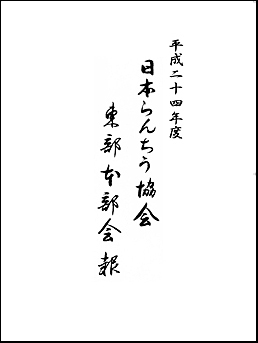 平成二十四年度
日本らんちう協会
東部本部会報